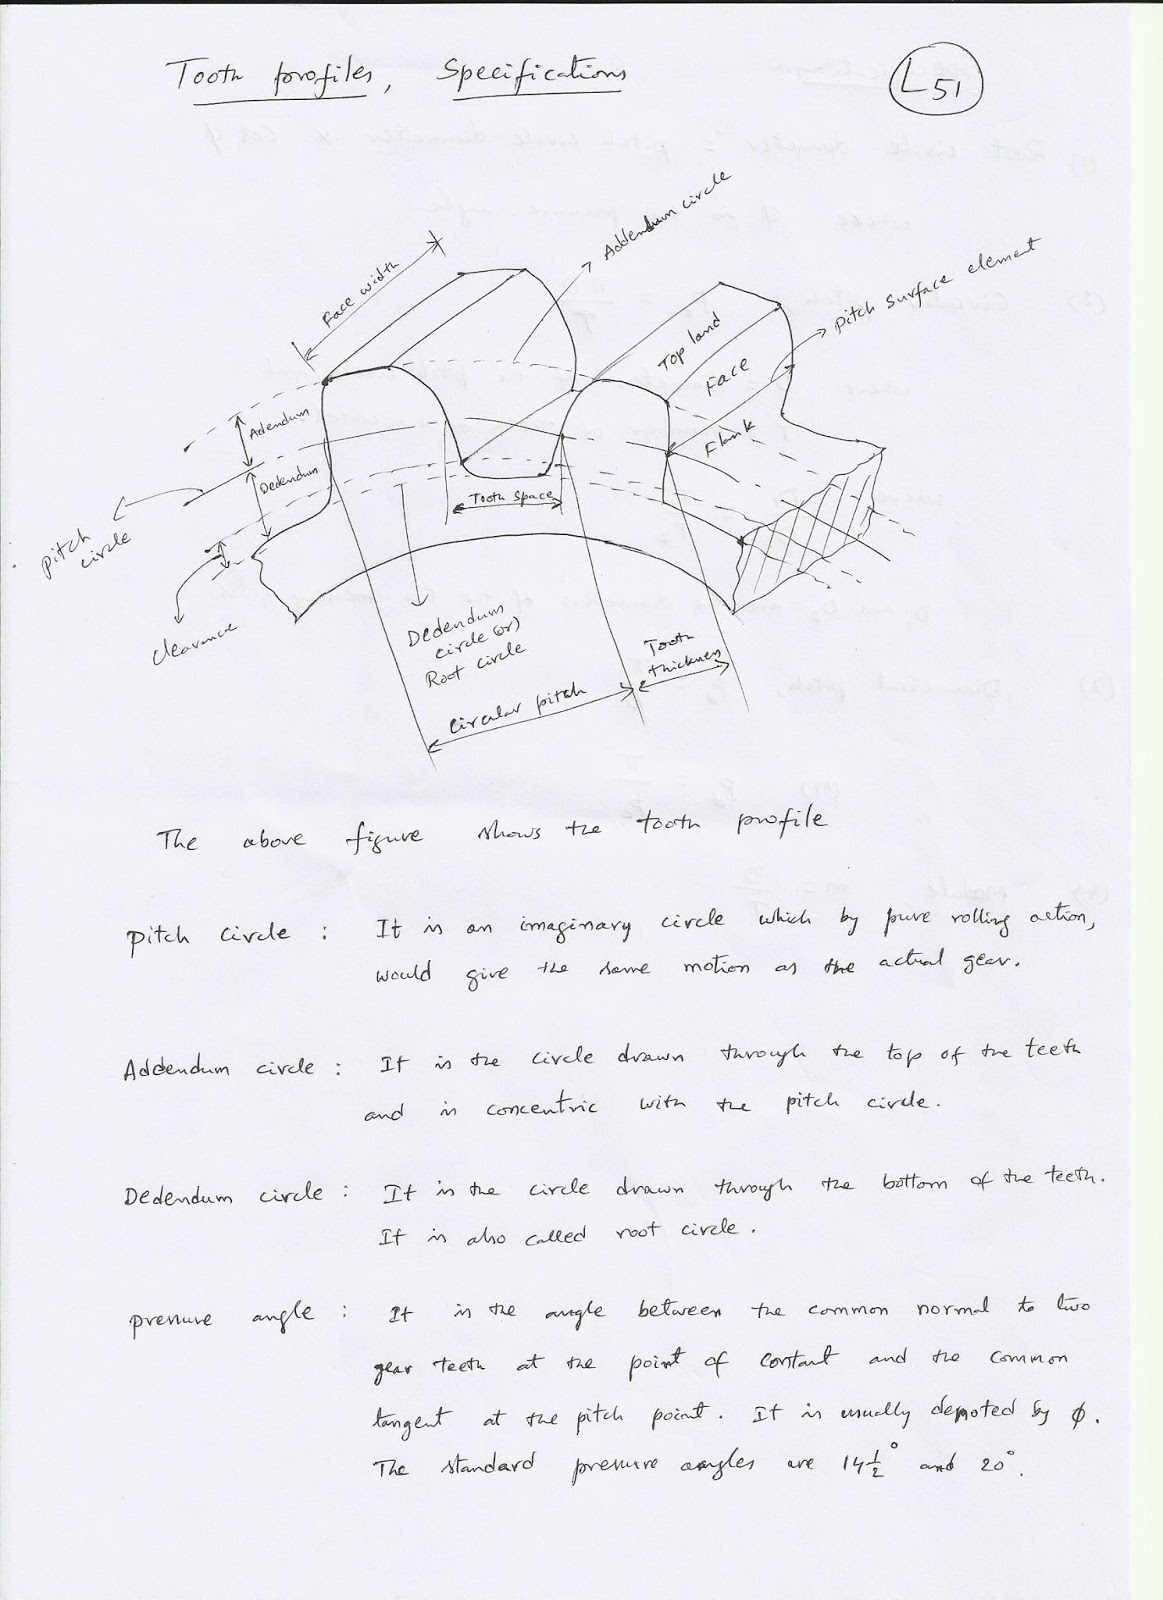 Tooth profiles, Specifications
L51
Addendum circle
Face width
Pitch surface element
Top land
Face
Flank
Addendum
Dedendum
Tooth space
Pitch
circle
Clearance
Dedendum
circle (or)
Root circle
Tooth
thickness
Circular pitch
The above figure shows the tooth profile
Pitch circle : It is an imaginary circle which by pure rolling action,
would give the same motion as the actual gear.
Addendum circle : It is the circle drawn through the top of the teeth
and is concentric with the pitch circle.
Dedendum circle : It is the circle drawn through the bottom of the teeth.
It is also called root circle.
Pressure angle : It is the angle between the common normal to two
gear teeth at the point of contact and the common
tangent at the pitch point. It is usually denoted by ϕ.
The standard pressure angles are 14½° and 20°.